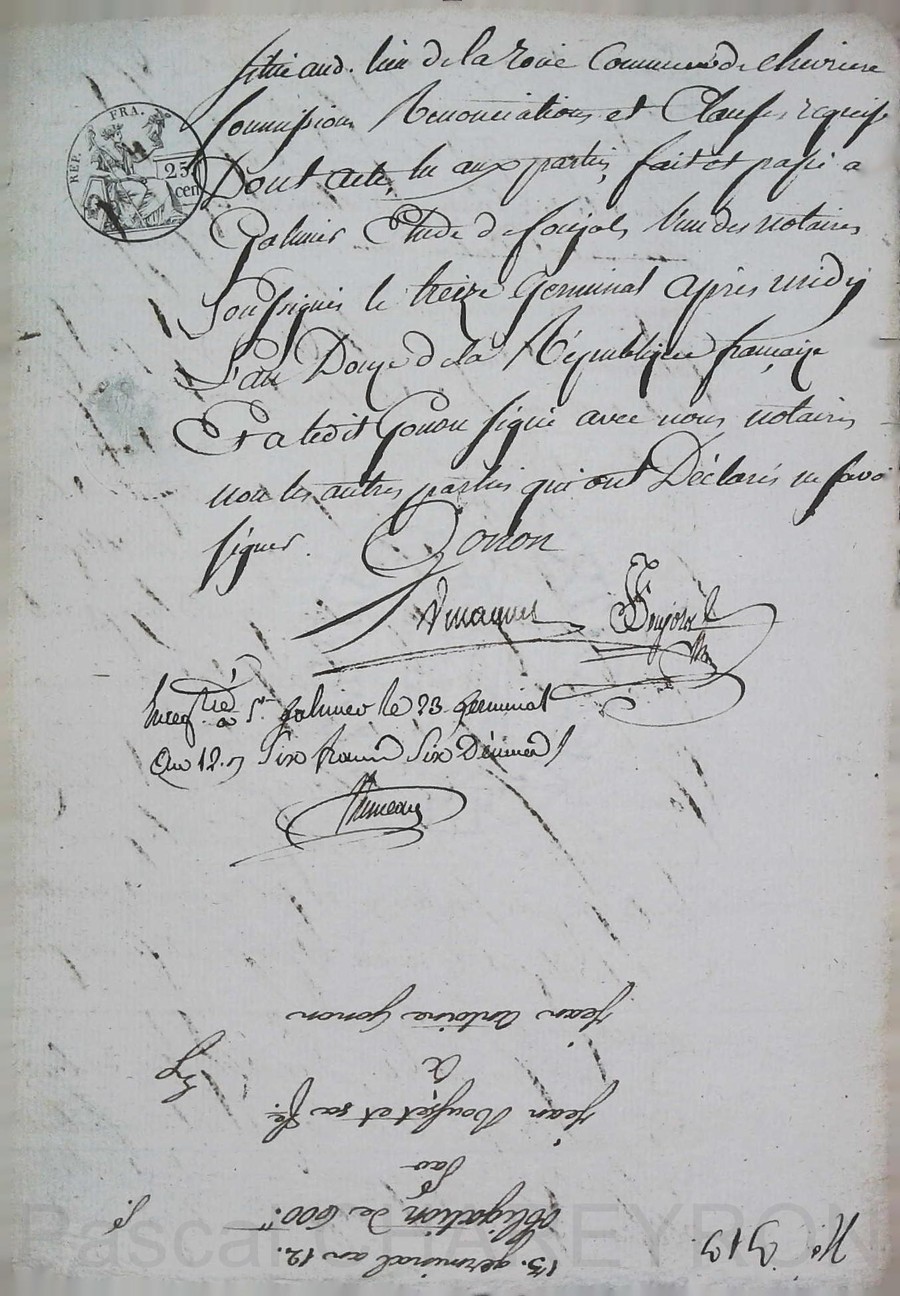 située aud. lieu de la Commune de chevriere
Soumissions Renonciations et Clauses requises
Dont acte, lu aux parties, fait et passé a
Galmier Etude de Soujols l'un des notaires
Soussignés le treize Germinal après midy
L'an Douze de la République française
Et a ledit Gonon signé avec nous notaires
non les autres parties qui ont Déclarés ne savoir
signer. Gonon
REP. FRA.
25
cen
Enregistré a St galmier le 23. germinal
an 12. Six francs Six Décimes
No 313
13. germinal an 12.
obligation de 600.
Par
Jean et sa fe.
a
Jean Antoine Gonon
Pascal CHAREYRON